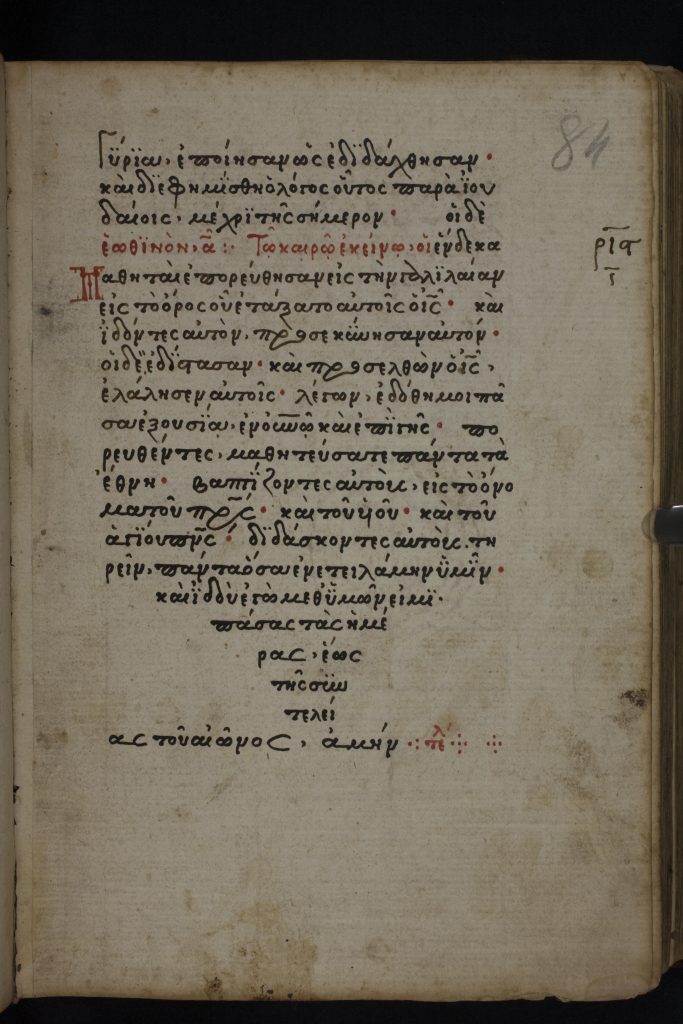 γύρϊα, ἐποίησαν ὡς ἐδϊδάχθησαν·
καὶ δϊεφημίσθη ὁ λόγος οὗτος παρὰ ϊου
δαίοις, μέχρϊ τῆς σήμερον· οἱ δὲ
ἑωθϊνὸν, α̅ :· Τῶ καιρῶ ἐκείνω, οἱ ἕνδεκα
Μαθηταὶ ἐπορεύθησαν εἰς τὴν γαλϊλαίαν
εἰς τὸ ὄρος οὗ ἐτάξατο αὐτοῖς ὁ ι̅ς̅· καὶ
ϊδόντες αὐτὸν, προσεκύνησαν αὐτόν·
οἱ δὲ ἐδΐστασαν· καὶ προσελθὼν ὁ ι̅ς̅,
ἐλάλησεν αὐτοῖς· λέγων, ἐδόθη μοι πᾶ
σα ἐξουσΐα, ἐν ο̅υ̅ν̅ῶ καὶ ἐπὶ γῆς· πο
ρευθέντες, μαθητεύσατε πάντα τὰ
ἔθνη· βαπτίζοντες αὐτοὺς, εἰς τὸ ὄνο
μα τοῦ π̅ρ̅ς̅· καὶ τοῦ υἱοῦ· καὶ τοῦ
ἁγίου π̅ν̅ς̅· δϊδάσκοντες αὐτοὺς τη
ρεῖν, πάντα ὅσα ἐνετειλάμην ὑμῖν·
καὶ ϊδοὺ ἐγὼ μεθ ὑμῶν εἰμϊ·
πάσας τὰς ἡμέ
ρας, ἕως
τῆς συν
τελεί
ας τοῦ αἰῶνος, ἀμήν ·: τελ ·:· ·:·
84
ρ̅ι̅ϛ̅
ι̅